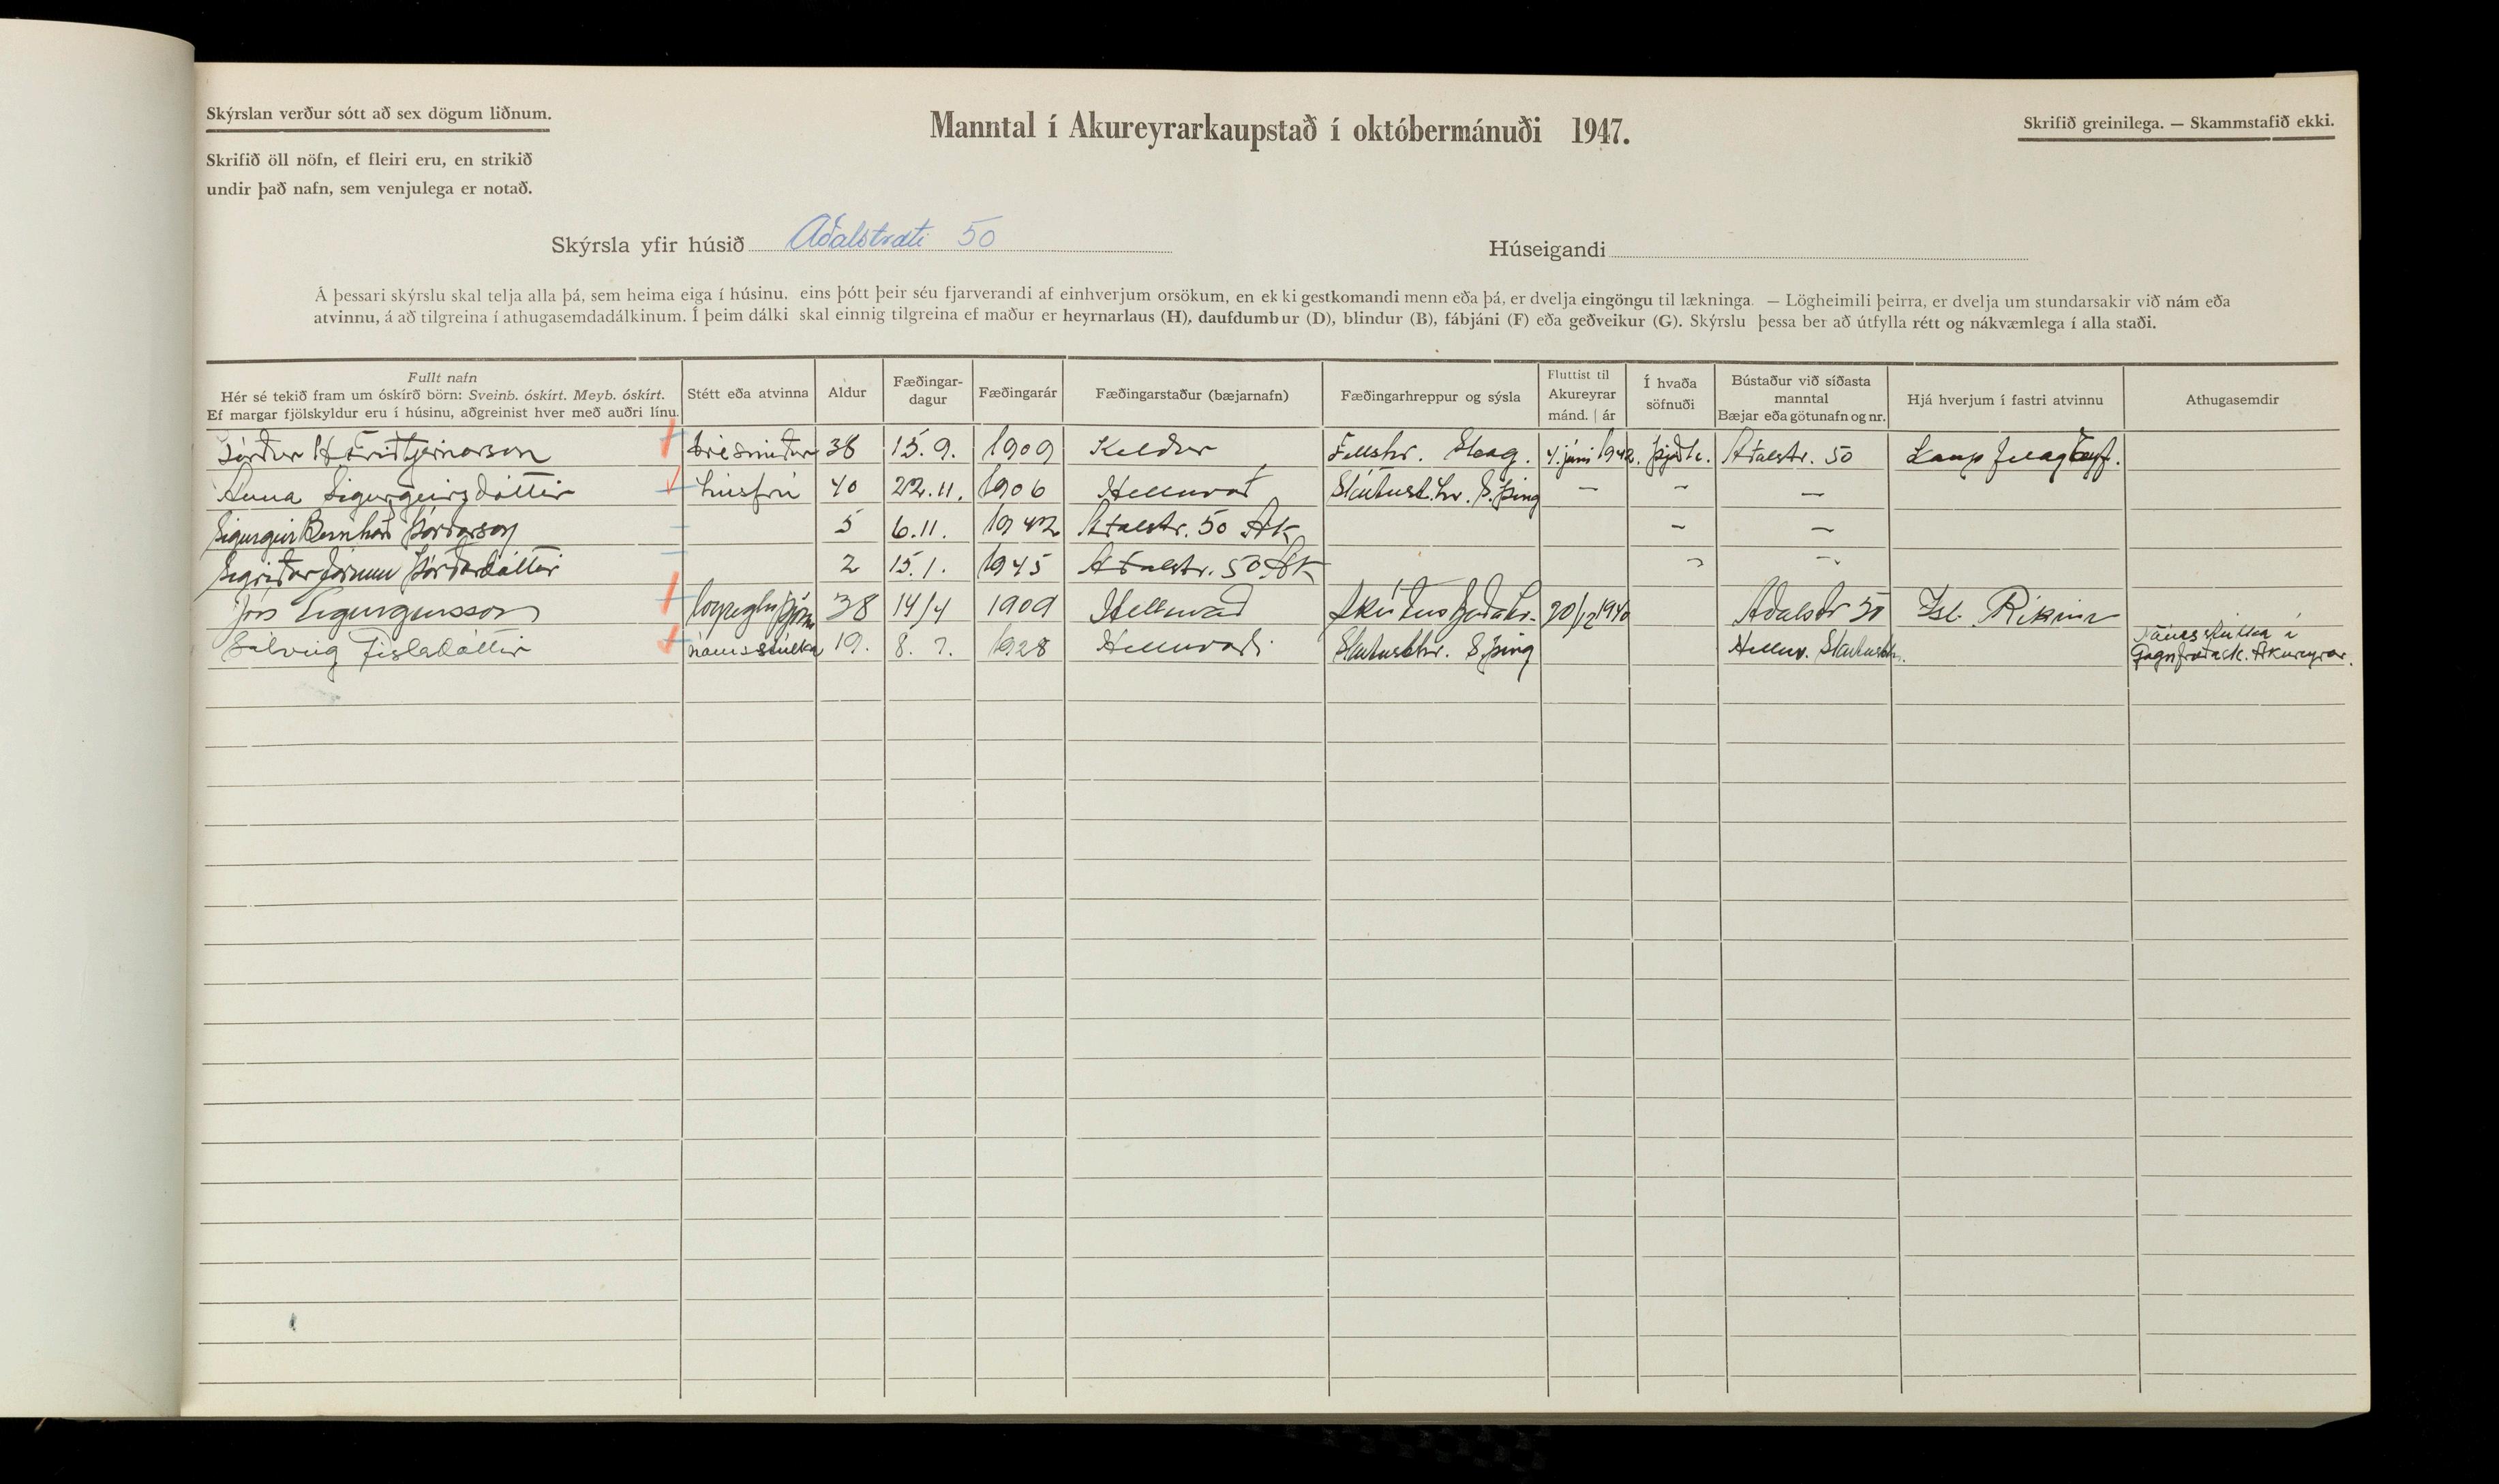 Skýrslan verður sótt að sex dögum liðnum.
Manntal í Akureyrarkaupstað í októbermánuði 1947.
Skrifið greinilega. — Skammstafið ekki.
Skrifið öll nöfn, ef fleiri eru, en strikið
undir það nafn, sem venjulega er notað.
Skýrsla yfir húsið Aðalstræti 50
Húseigandi
Á þessari skýrslu skal telja alla þá, sem heima eiga í húsinu, eins þótt þeir séu fjarverandi af einhverjum orsökum, en ekki gestkomandi menn eða þá, er dvelja eingöngu til lækninga. — Lögheimili þeirra, er dvelja um stundarsakir við nám eða
atvinnu, á að tilgreina í athugasemdadálkinum. Í þeim dálki skal einnig tilgreina ef maður er heyrnarlaus (H), daufdumbur (D), blindur (B), fábjáni (F) eða geðveikur (G). Skýrslu þessa ber að útfylla rétt og nákvæmlega í alla staði.
Fullt nafn
Hér sé tekið fram um óskírð börn: Sveinb. óskírt. Meyb. óskírt.
Ef margar fjölskyldur eru í húsinu, aðgreinist hver með auðri línu.
Stétt eða atvinna
Aldur
Fæðingar-
dagur
Fæðingarár
Fæðingarstaður (bæjarnafn)
Fæðingarhreppur og sýsla
Fluttist til
Akureyrar
mánd. | ár
Í hvaða
söfnuði
Bústaður við síðasta
manntal
Bæjar eða götunafn og nr.
Hjá hverjum í fastri atvinnu
Athugasemdir
Þórður Friðbjarnarson trésmiður 38 15.9. 1909 Keldur Fellshr. Skag. 4. júní 1942. Þjóðk. Aðalstr. 50 Kaupfélag Eyf.
Anna Sigurgeirsdóttir húsfrú 40 22.11. 1906 Helluvað Skútust.hr. S.Þing — — —
Sigurgeir Bernharð Þórðarson 5 6.11. 1942 Aðalstr. 50 Ak — —
Sigríður Jórunn Þórðardóttir 2 15.1. 1945 Aðalstr. 50 Ak
Jón Sigurgeirsson 38 14/4 1909 Helluvað Skútustaðahr. 20/12 1940 Aðalstr 50 Ísl. Ríkinu
Sólveig Gísladóttir námsstúlka 19. 8. 7. 1928 Helluvaði Skútusthr. S Þing Helluv. Skútusthr. Námsstúlka í
Gagnfræðask. Akureyrar.